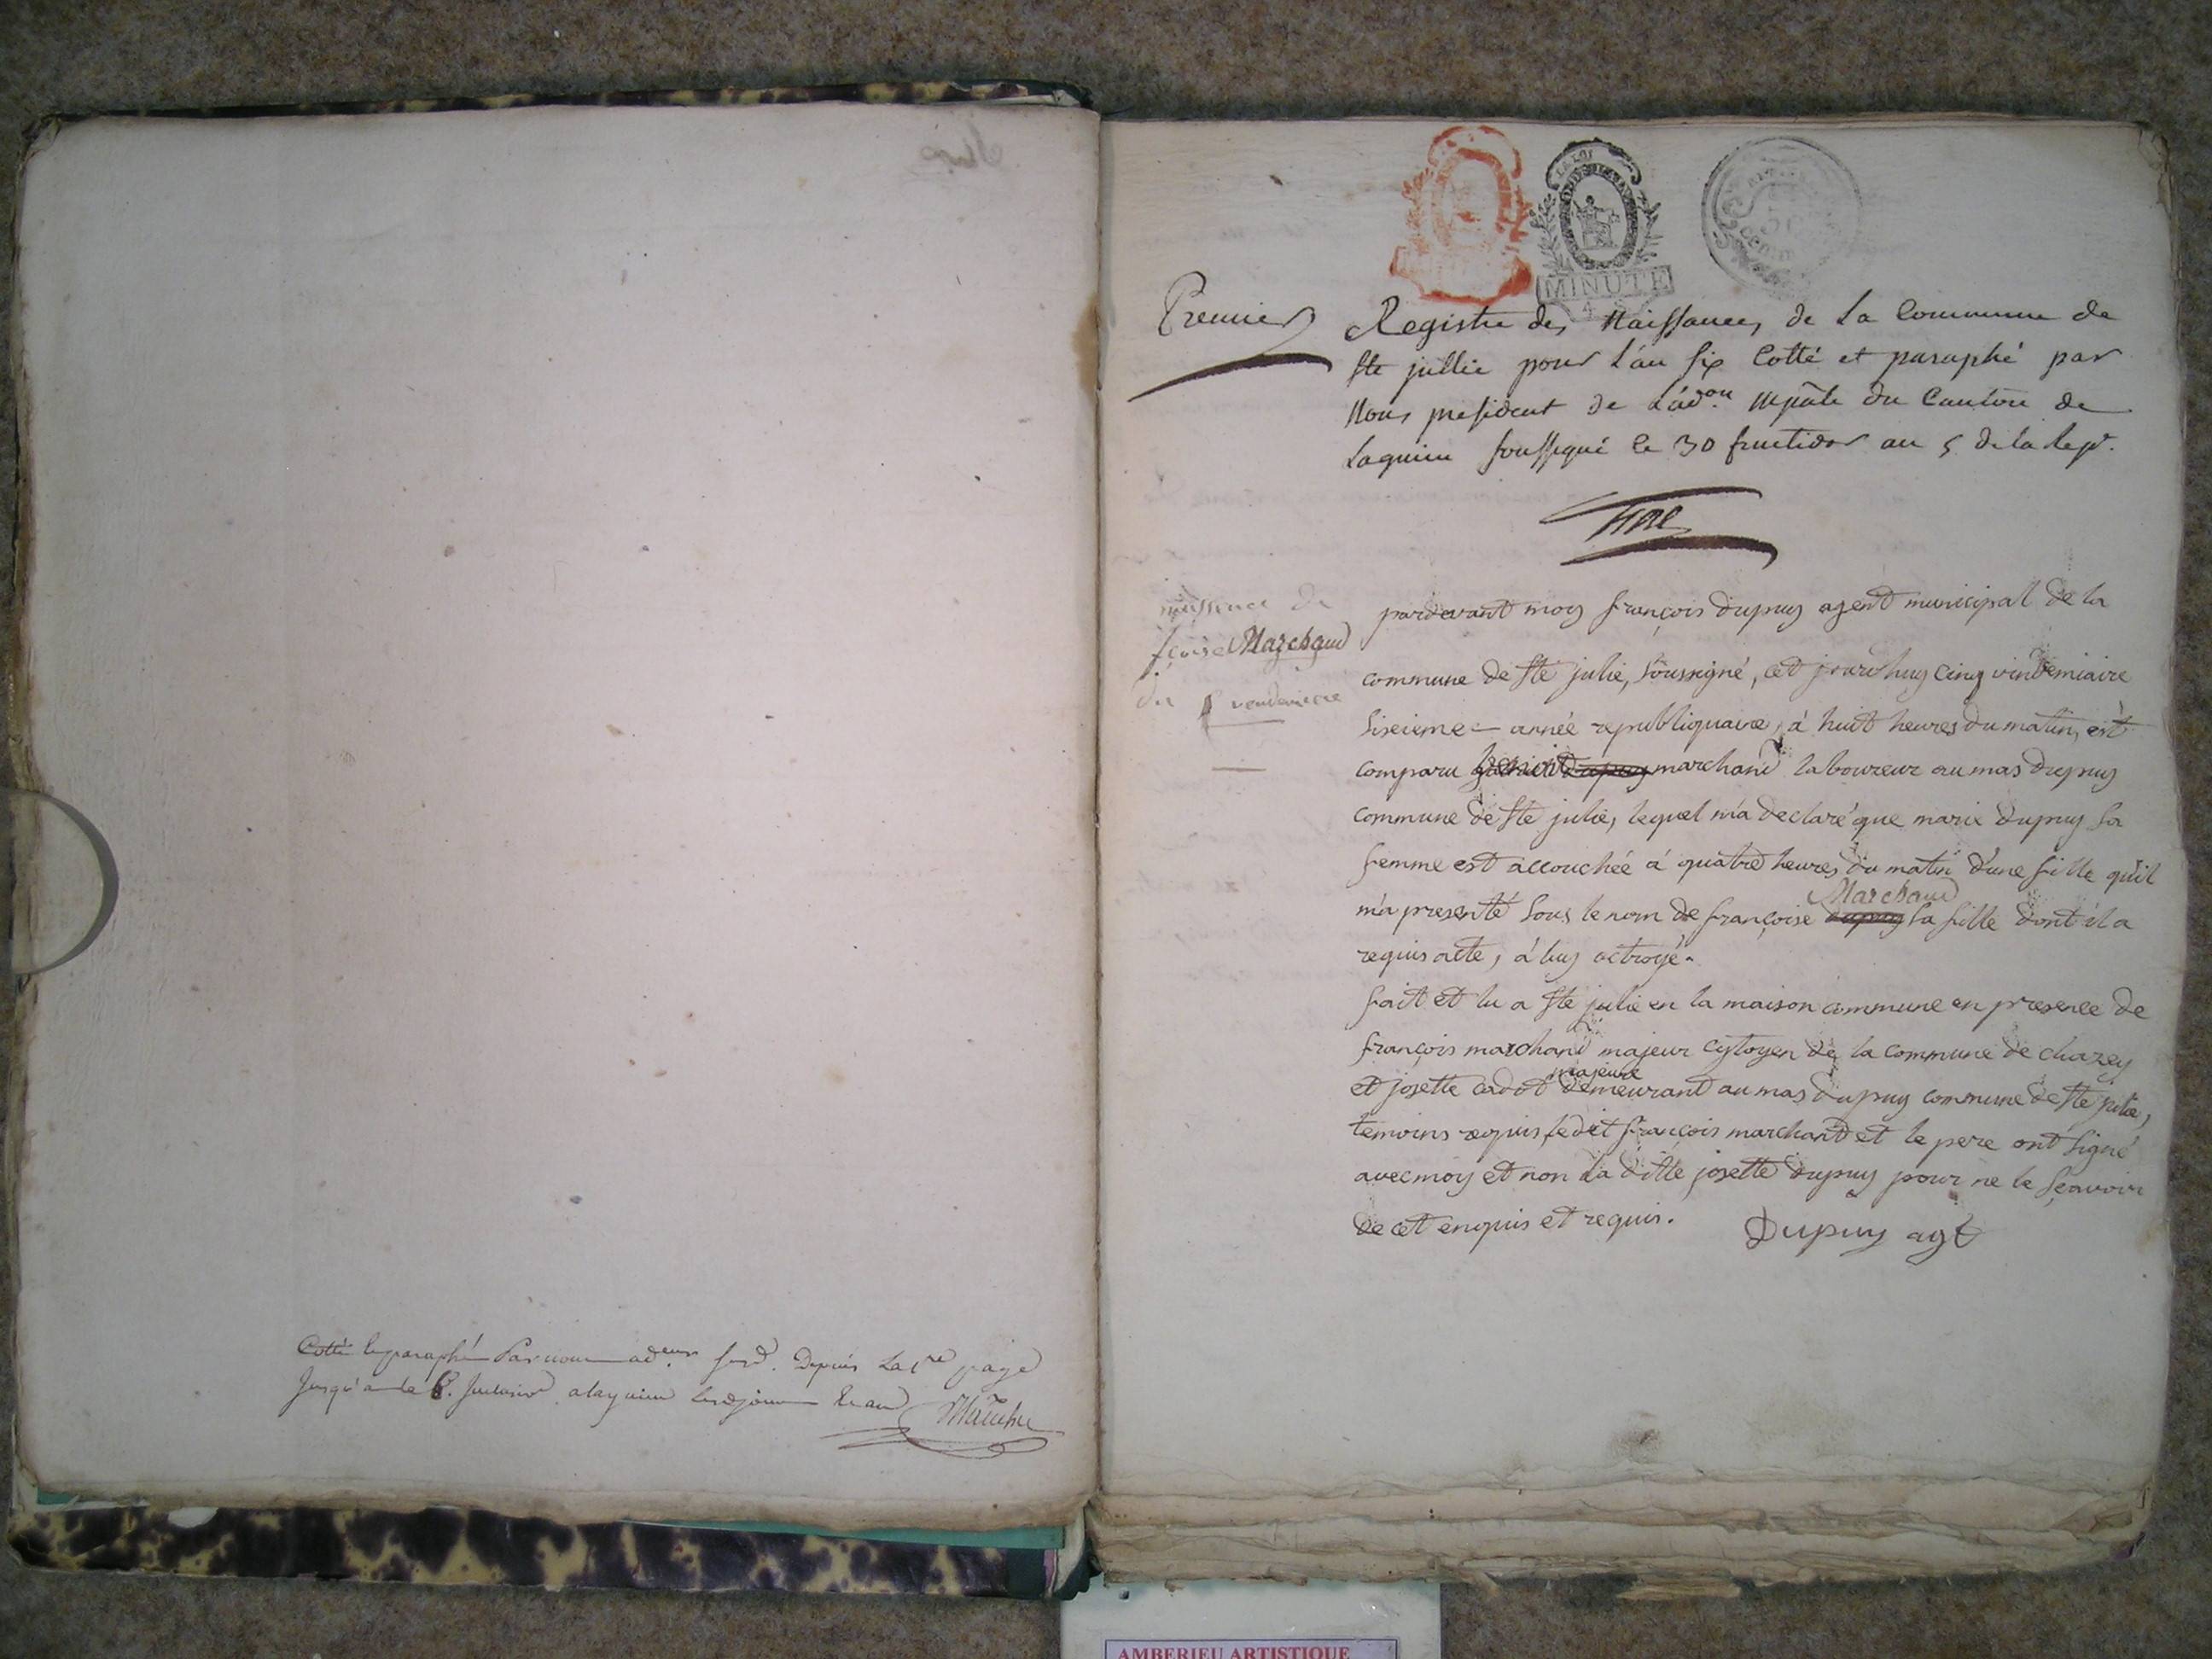 Cotté et paraphé Par nous ad.eur sousd. Depuis La 1re page
Jusqu'a la 6. a lagnieu lesd jour et an
LA LOI
MINUTE
CENT
Premier
Registre des Naissances de La Commune de
Ste jullie pour L'an six Cotté et paraphé par
Nous president de L'adon. mpāle du Canton de
Lagnieu soussigné le 30 fructidor an 5 de la Rep.
naissance de
fçoise Marchand
du 5 vendemiere
pardevant moy françois dupuy agent municipal de la
commune de Ste julie, soussigné, cet jourdhuy cinq vindemiaire
sixieme année republiquaire, à huit heures du matin, est
comparu benoit dupuy marchand laboureur au mas dupuy
commune de Ste julie, lequel m'a declaré que marie dupuy sa
femme est accouchée à quatre heures du matin d'une fille qu'il
Marchand
m'a presenté sous le nom de françoise dupuy sa fille dont il a
requis acte, à luy octroyé.
fait et lu a Ste julie en la maison commune en presence de
françois marchand majeur cytoyen de la commune de chazey
majeure
et josette cadot demeurant au mas dupuy commune de Ste julie,
temoins requis, ledit françois marchand et le pere ont signé
avec moy et non la ditte josette dupuy pour ne le sçavoir
de cet enquis et requis.
Dupuy agt
AMBERIEU ARTISTIQUE